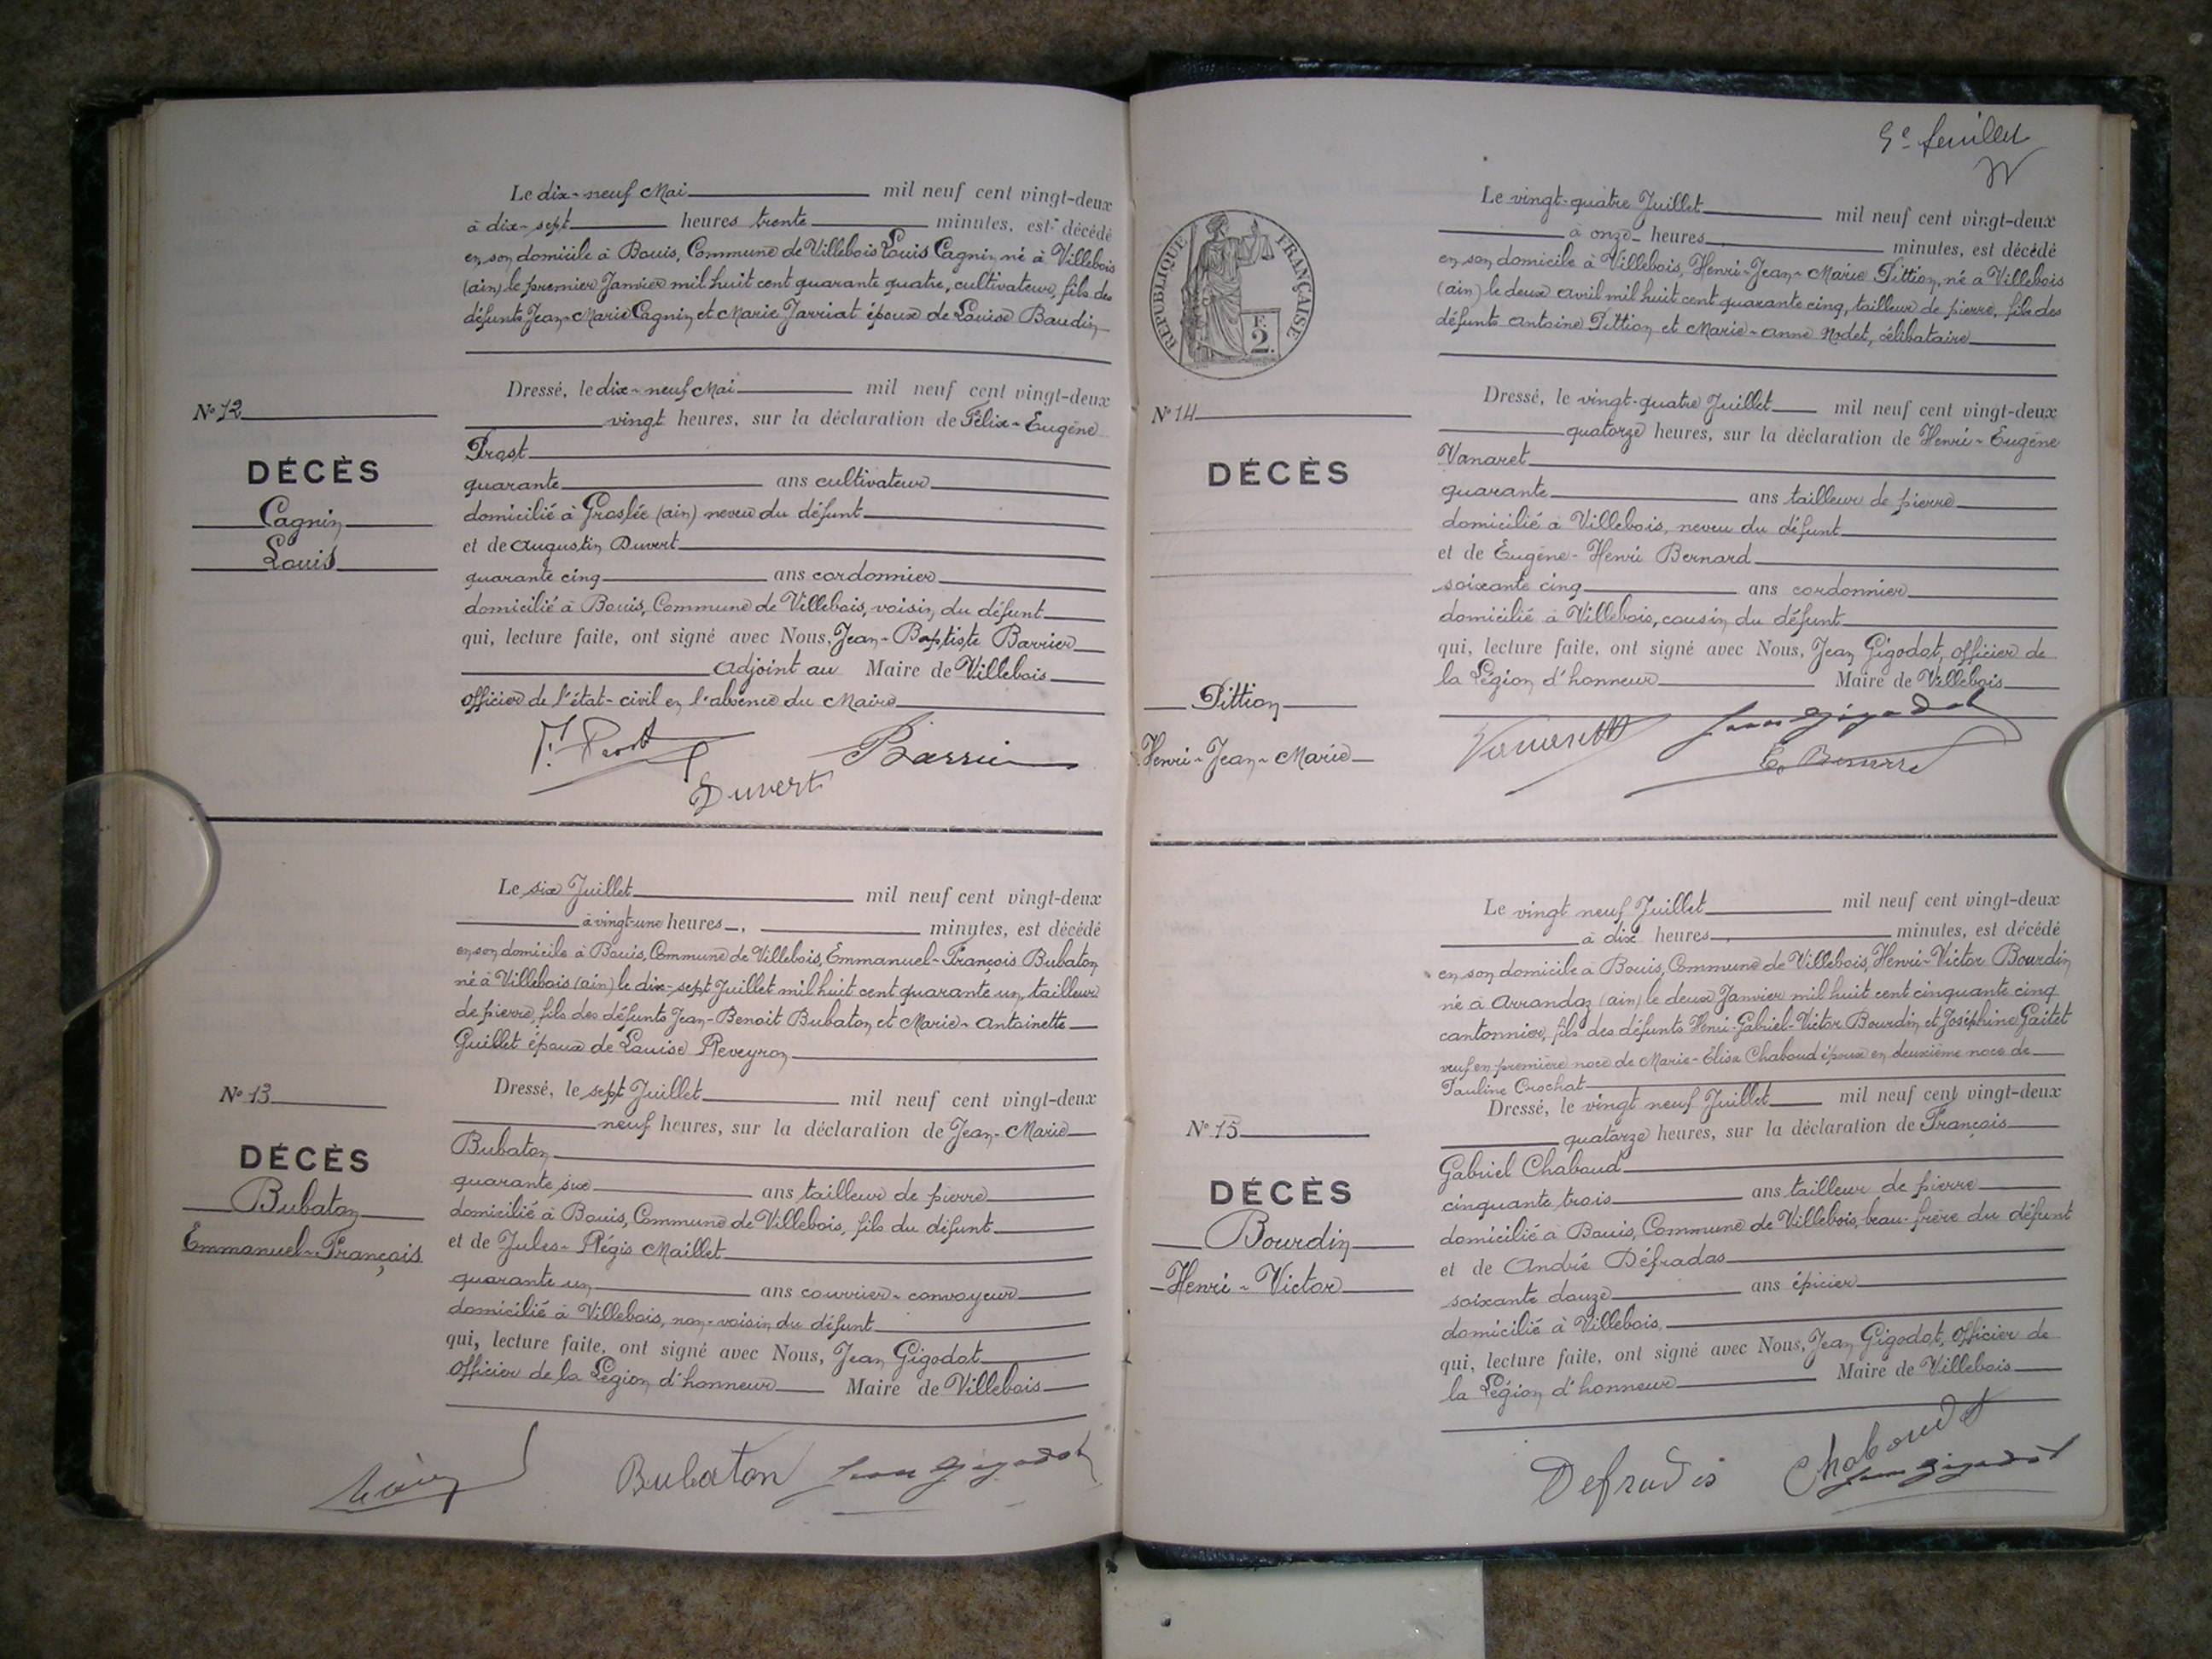 Le dix-neuf Mai mil neuf cent vingt-deux
à dix-sept heures trente minutes, est décédé
en son domicile à Bouis, Commune de Villebois Louis Cagnin né à Villebois
(ain) le premier Janvier mil huit cent quarante quatre, cultivateur, fils des
défunts Jean-Marie Cagnin et Marie Jarriat époux de Louise Baudin
Nº 12
DÉCÈS
Cagnin
Louis
Dressé, le dix-neuf Mai mil neuf cent vingt-deux
vingt heures, sur la déclaration de Félix-Eugène
Prost
quarante ans cultivateur
domicilié à Groslée (ain) neveu du défunt
et de Augustin Duvert
quarante cinq ans cordonnier
domicilié à Bouis, Commune de Villebois, voisin du défunt
qui, lecture faite, ont signé avec Nous, Jean-Baptiste Barrier
adjoint au Maire de Villebois
officier de l'état-civil en l'absence du Maire
F. Prost
Barrier
Duvert
Le six Juillet mil neuf cent vingt-deux
à vingt-une heures minutes, est décédé
en son domicile à Bouis, Commune de Villebois, Emmanuel-François Bubaton
né à Villebois (ain) le dix-sept Juillet mil huit cent quarante un, tailleur
de pierre, fils des défunts Jean-Benoit Bubaton et Marie-Antoinette
Guillet époux de Louise Reveyron
Nº 13
DÉCÈS
Bubaton
Emmanuel-François
Dressé, le sept Juillet mil neuf cent vingt-deux
neuf heures, sur la déclaration de Jean-Marie
Bubaton
quarante six ans tailleur de pierre
domicilié à Bouis, Commune de Villebois, fils du défunt
et de Jules-Régis Maillet
quarante un ans courrier-convoyeur
domicilié à Villebois, non-voisin du défunt
qui, lecture faite, ont signé avec Nous, Jean Gigodot
Officier de la Légion d'honneur Maire de Villebois
Bubaton Jean Gigodot
5e feuillet
REPUBLIQUE FRANÇAISE
F.
2.
Le vingt-quatre Juillet mil neuf cent vingt-deux
à onze heures minutes, est décédé
en son domicile à Villebois, Henri-Jean-Marie Pittion, né à Villebois
(ain) le deux avril mil huit cent quarante cinq, tailleur de pierre, fils des
défunts Antoine Pittion et Marie-Anne Nodet, célibataire
Nº 14
DÉCÈS
Pittion
Henri-Jean-Marie
Dressé, le vingt-quatre Juillet mil neuf cent vingt-deux
quatorze heures, sur la déclaration de Henri-Eugène
Vanaret
quarante ans tailleur de pierre
domicilié à Villebois, neveu du défunt
et de Eugène-Henri Bernard
soixante cinq ans cordonnier
domicilié à Villebois, cousin du défunt
qui, lecture faite, ont signé avec Nous, Jean Gigodot, officier de
la Légion d'honneur Maire de Villebois
Jean Gigodot
Le vingt neuf Juillet mil neuf cent vingt-deux
à dix heures minutes, est décédé
en son domicile à Bouis, Commune de Villebois, Henri-Victor Bourdin
né à Arrandaz (ain) le deux Janvier mil huit cent cinquante cinq
cantonnier, fils des défunts Henri-Gabriel-Victor Bourdin et Joséphine Gaitet
veuf en première noce de Marie-Élisa Chaboud époux en deuxième noce de
Pauline Crochat
Nº 15
DÉCÈS
Bourdin
Henri-Victor
Dressé, le vingt neuf Juillet mil neuf cent vingt-deux
quatorze heures, sur la déclaration de François
Gabriel Chaboud
cinquante trois ans tailleur de pierre
domicilié à Bouis, Commune de Villebois, beau-frère du défunt
et de André Défradas
soixante douze ans épicier
domicilié à Villebois
qui, lecture faite, ont signé avec Nous, Jean Gigodot, Officier de
la Légion d'honneur Maire de Villebois
Chaboud
Jean Gigodot